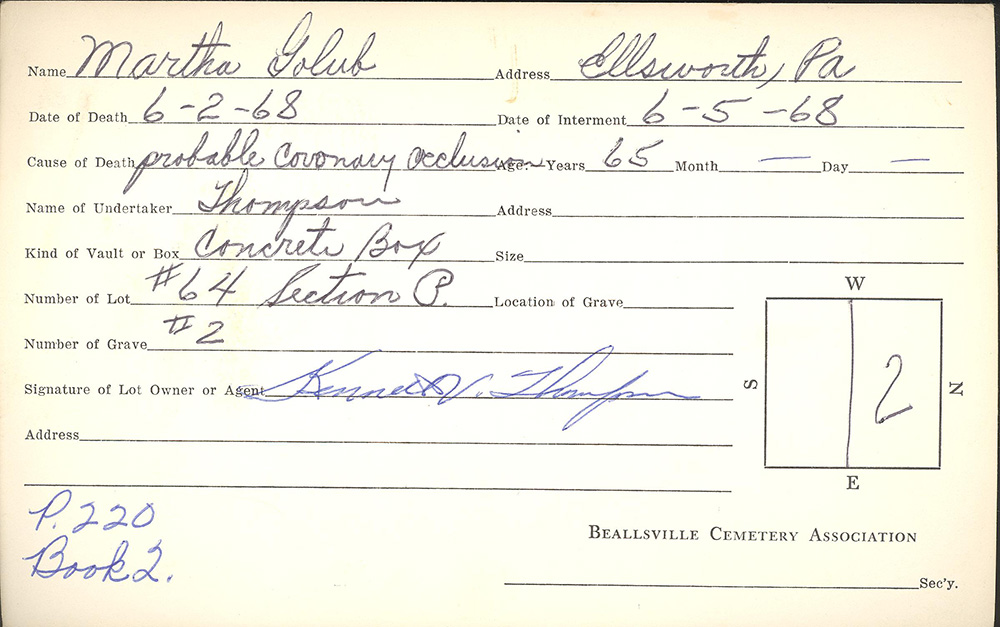 Name Martha Golub Address Ellsworth, Pa
Date of Death 6-2-68 Date of Interment 6-5-68
Cause of Death probable Coronary Occlusion Age: Years 65 Month — Day —
Name of Undertaker Thompson Address
Kind of Vault or Box Concrete Box Size
Number of Lot #64 Section P. Location of Grave
Number of Grave #2
Signature of Lot Owner or Agent Kenneth V. Thompson
Address
W
S 2 N
E
P. 220
Book 2.
BEALLSVILLE CEMETERY ASSOCIATION
Sec'y.